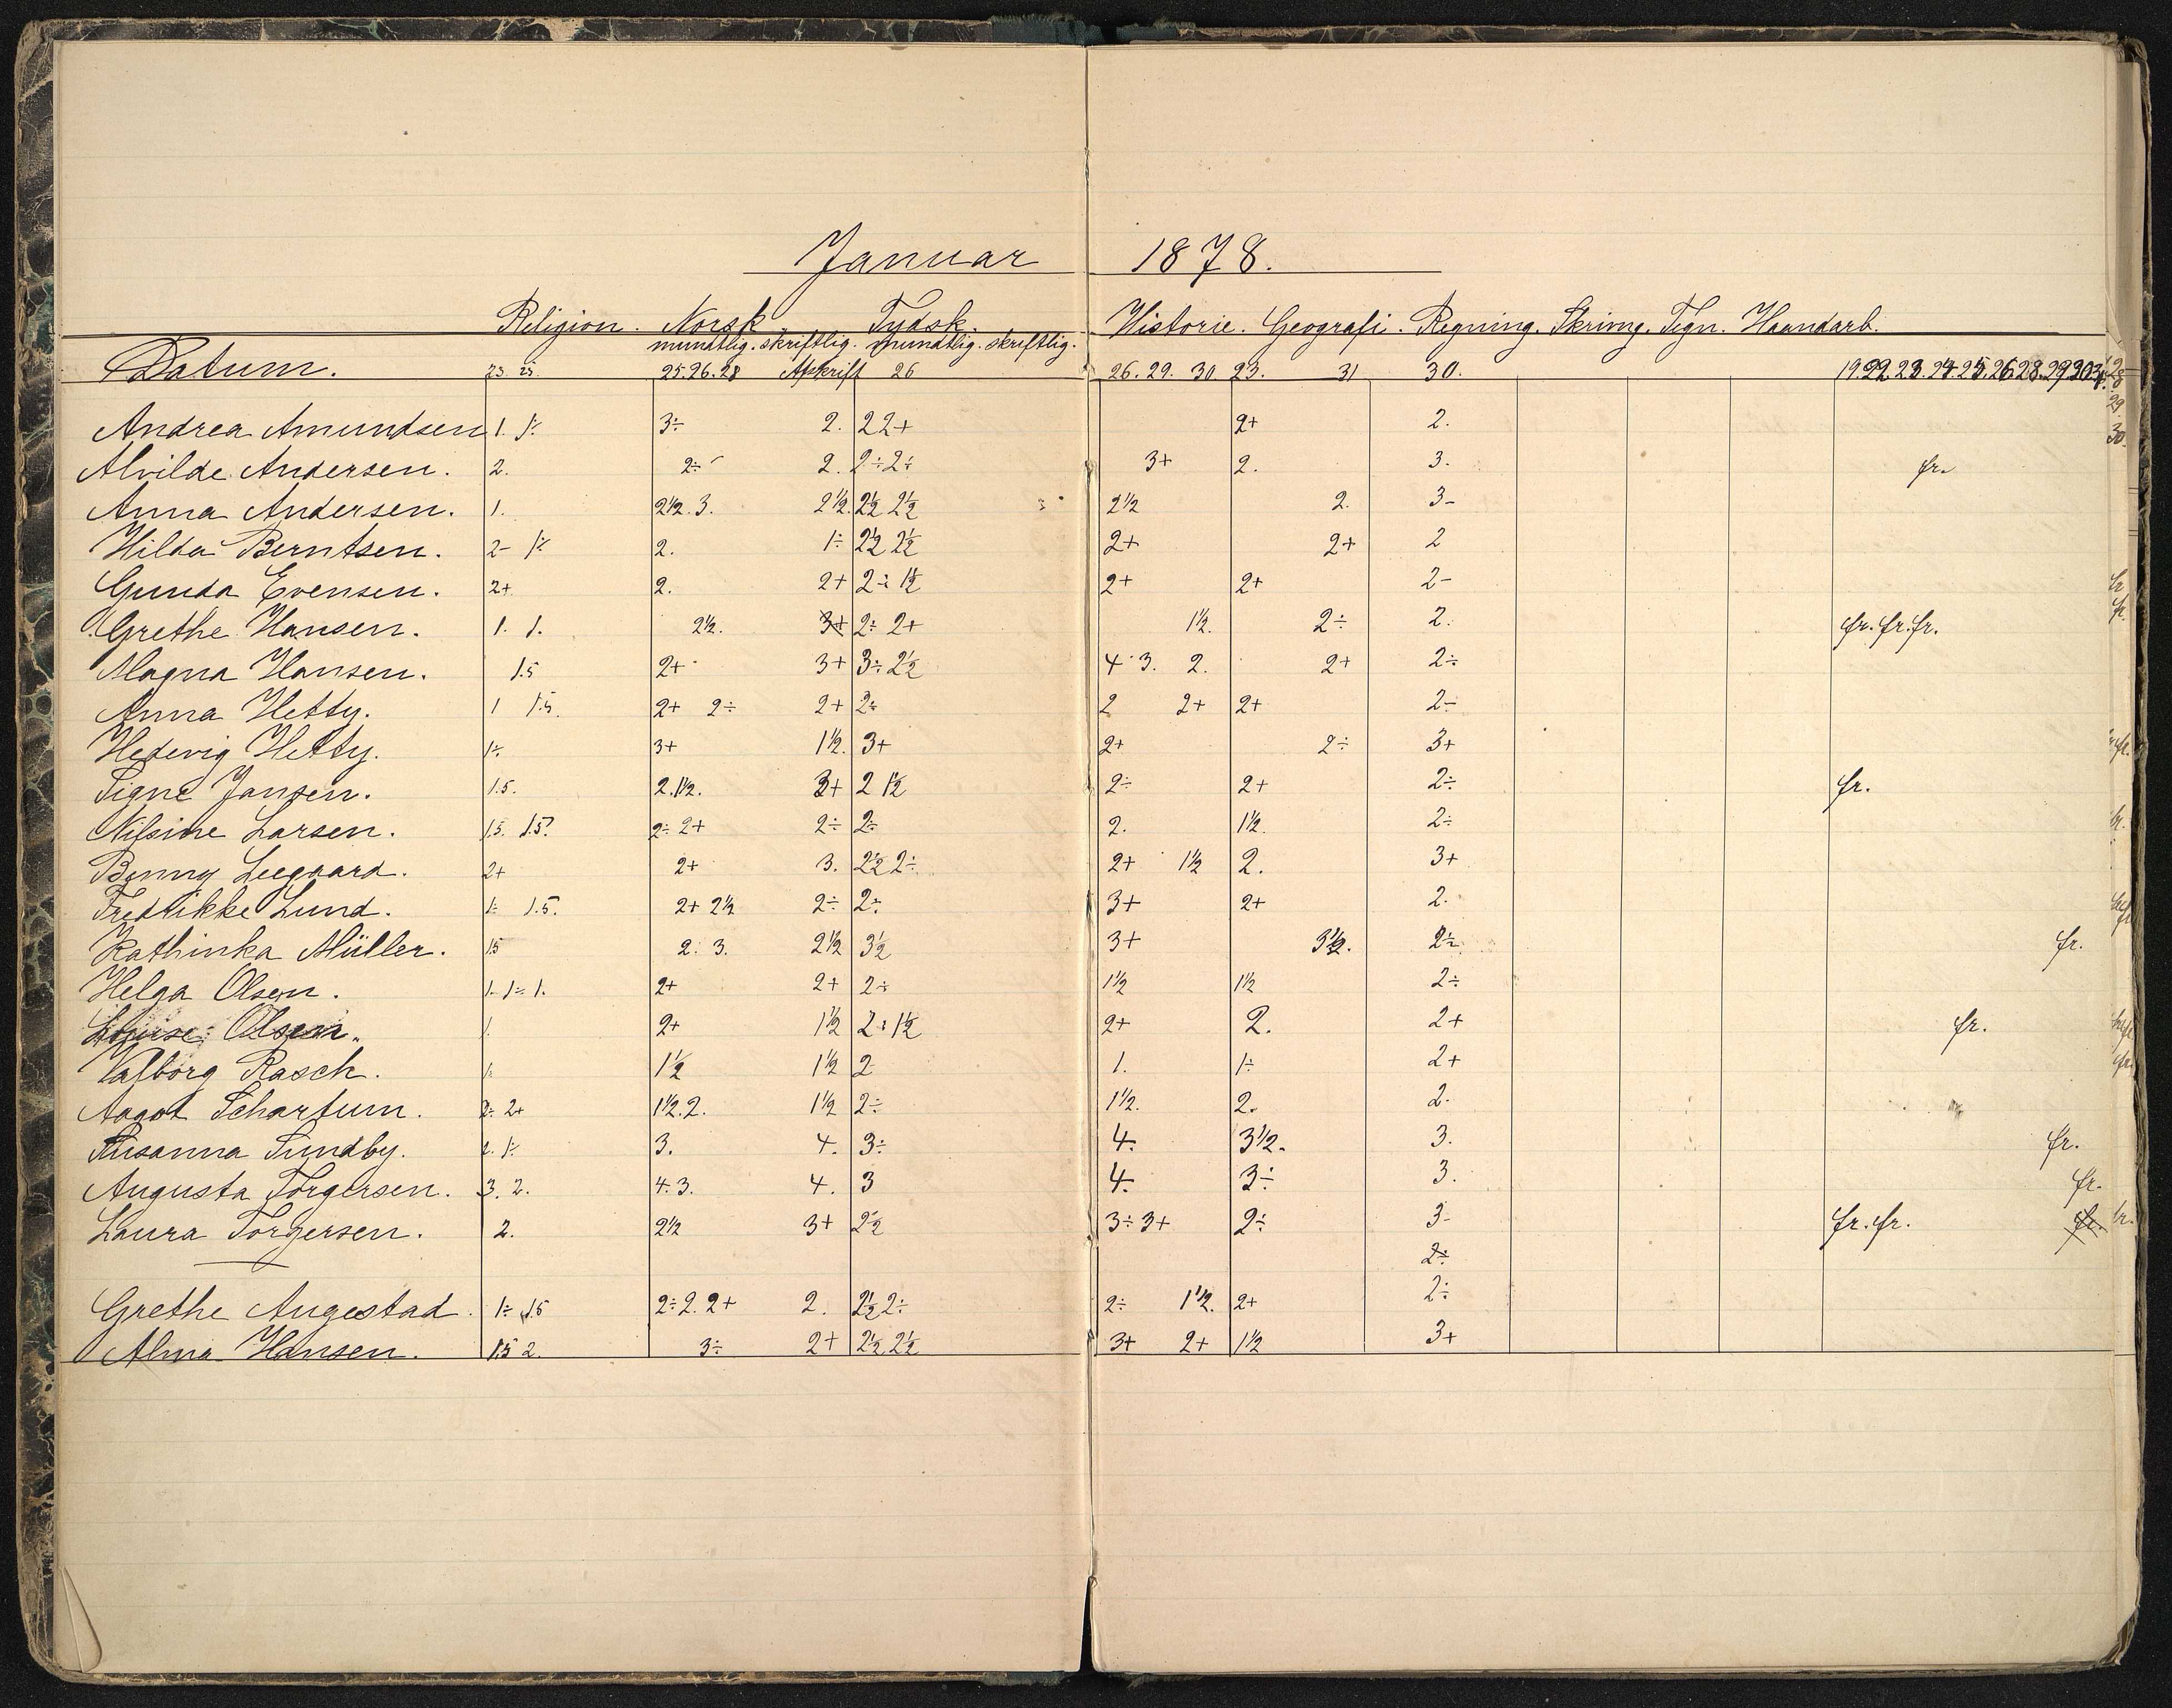 Januar 1878.
Religion. Norsk Tydsk. Historie. Geografi. Regning. Skrivng. Tegn. Haandarb.
mundtlig. skriftlig. mundtlig. skriftlig.
Datum. 23. 25. 25. 26. 28 Afskrift 26 26. 29. 30 23. 31 30. 19. 22. 23. 24. 25. 26. 28. 29 30 31
Andrea Amundsen 1. 1÷ 3÷ 2. 2 2+ 2+ 2.
Alvilde Andersen. 2. 2÷ 2. 2÷ 2÷ 3+ 2. 3. fr.
Anna Andersen. 1. 2½. 3. 2½. 2½ 2½ 2½ 2. 3-
Hilda Berntsen. 2- 1÷ 2. 1÷ 2½ 2½ 2+ 2+ 2
Gunda Evensen. 2+ 2. 2+ 2÷ 1½ 2+ 2+ 2-
Grethe Hansen. 1. 1. 2½. 3+ 2÷ 2+ 1½. 2÷ 2. fr. fr. fr.
Magna Hansen. 1.5 2+ 3+ 3÷ 2½ 4 3. 2. 2+ 2÷
Anna Hetty. 1 1.5. 2+ 2÷ 2+ 2÷ 2 2+ 2+ 2-
Hedevig Hetty. 1÷ 3+ 1½. 3+ 2+ 2÷ 3+
Signe Jansen. 1.5. 2. 1½. 3+ 2 1½ 2÷ 2+ 2÷ fr.
Nilsine Larsen. 1.5. 1.5. 2÷ 2+ 2÷ 2÷ 2. 1½. 2÷
Benny Leegaard. 2+ 2+ 3. 2½ 2÷ 2+ 1½ 2. 3+
Fredrikke Lund. 1÷ 1.5. 2+ 2½ 2÷ 2÷ 3+ 2+ 2.
Kathinka Müller. 1.5 2. 3. 2½ 3½ 3+ 3½. 2÷ fr.
Helga Olsen. 1. 1÷ 1. 2+ 2+ 2÷ 1½ 1½ 2÷
Louise Olsen. 1. 2+ 1½ 2÷ 1½ 2+ 2. 2+ fr.
Valborg Rasch. 1. 1½ 1½ 2 1. 1÷ 2+
Aagot Schartum. 2÷ 2+ 1½. 2. 1½ 2÷ 1½. 2. 2.
Susanna Sundby. 2. 1÷ 3. 4. 3÷ 4. 3½. 3. fr.
Augusta Torgersen. 3. 2. 4. 3. 4. 3 4. 3÷ 3. fr.
Laura Torgersen. 2. 2½ 3+ 2½ 3÷ 3+ 2÷ 3- fr. fr. fr.
2÷
Grethe Augestad. 1÷ 1.5 2÷ 2. 2+ 2. 2½ 2÷ 2÷ 1½. 2+ 2÷
Alma Hansen. 1.5 2. 3÷ 2+ 2½ 2½ 3+ 2+ 1½ 3+